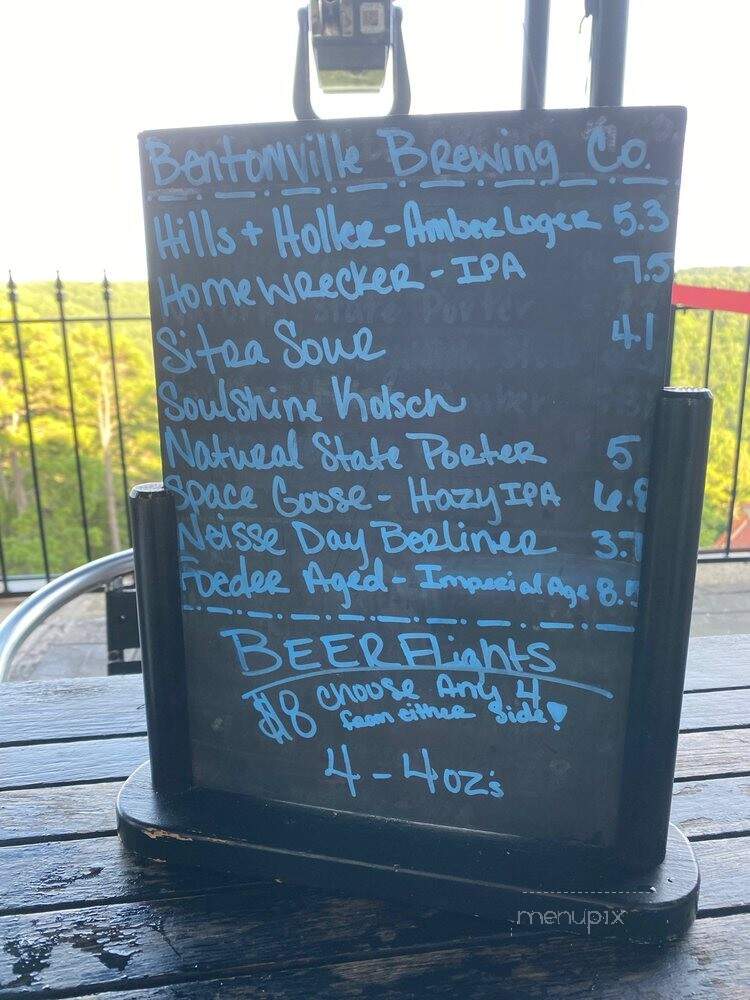 Bentonville Brewing Co.
Hills + Holler - Amber Lager 5.3
Homewrecker - IPA 7.5
Sitra Sour 41
Soulshine Kolsch
Natural State Porter 5
Space Goose - Hazy IPA 6.8
Neisse Day Berliner 3.7
Foeder Aged - Imperial Age 8.
BEER Flights
$8 choose Any 4
from either Side!
4 - 4oz's
menupix